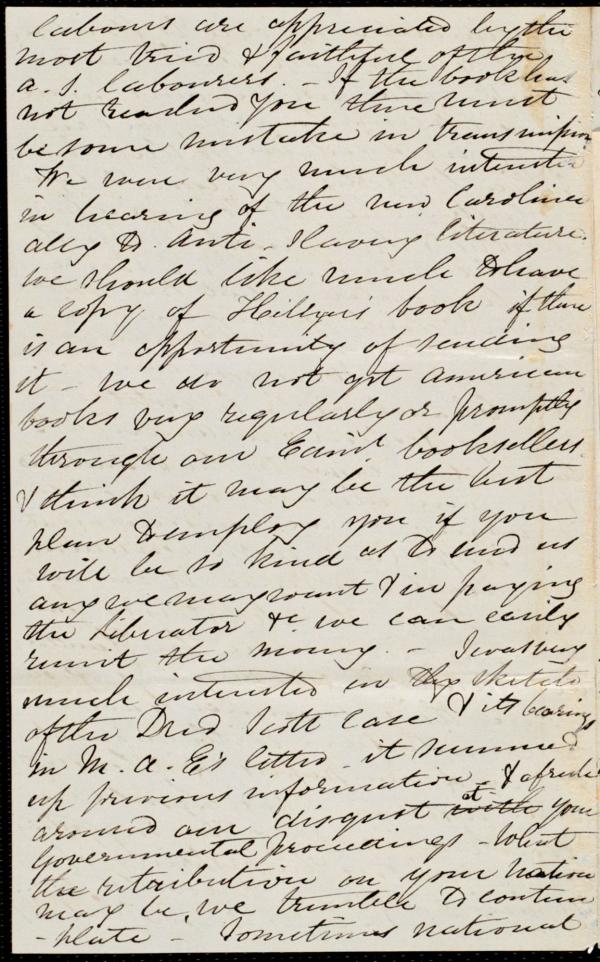 labours are appreciated by the
most tried & faithful of the
a. S. labourers. - If the book has
not reached you there must
be some mistake in transmission
We were very much interested
in hearing of the new Carolina
to Anti-Slavery literature.
we should like much to have
a copy of book if there
is an opportunity of sending
it - we do not get American
books very regularly or promptly
through our Edinr. booksellers
& think it may be the best
plan to employ you if you
will be so kind as to send us
any we may want & in paying
the Liberator &c we can easily
remit the money. - I was very
much interested in the sketch
of the Dred Scott Case & its bearings
in M. A. E's letter - it summed
up previous information & afresh
aroused our disgust at with your
Governmental proceedings - What
the retribution on your nation
may be, we tremble to contem
-plate - Sometimes national